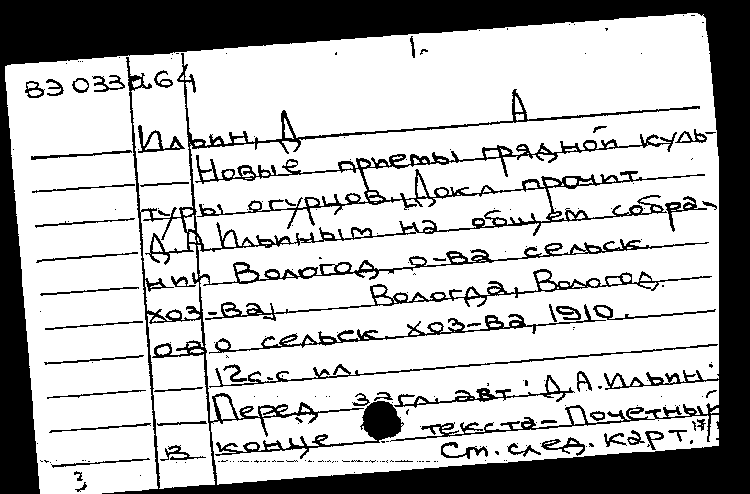 1.
ВЭ 033264
Ильин, Д А
Новые приемы грядной куль-
туры огурцов. [Докл. прочит.
Д. А. Ильиным на общем собра-
нии Вологод. о-ва сельск.
хоз-ва]. Вологда, Вологод.
о-во сельск. хоз-ва, 1910.
12 с. с ил.
Перед загл. авт.: Д.А.Ильин.
В конце текста - Почетный
См. след. карт.
3